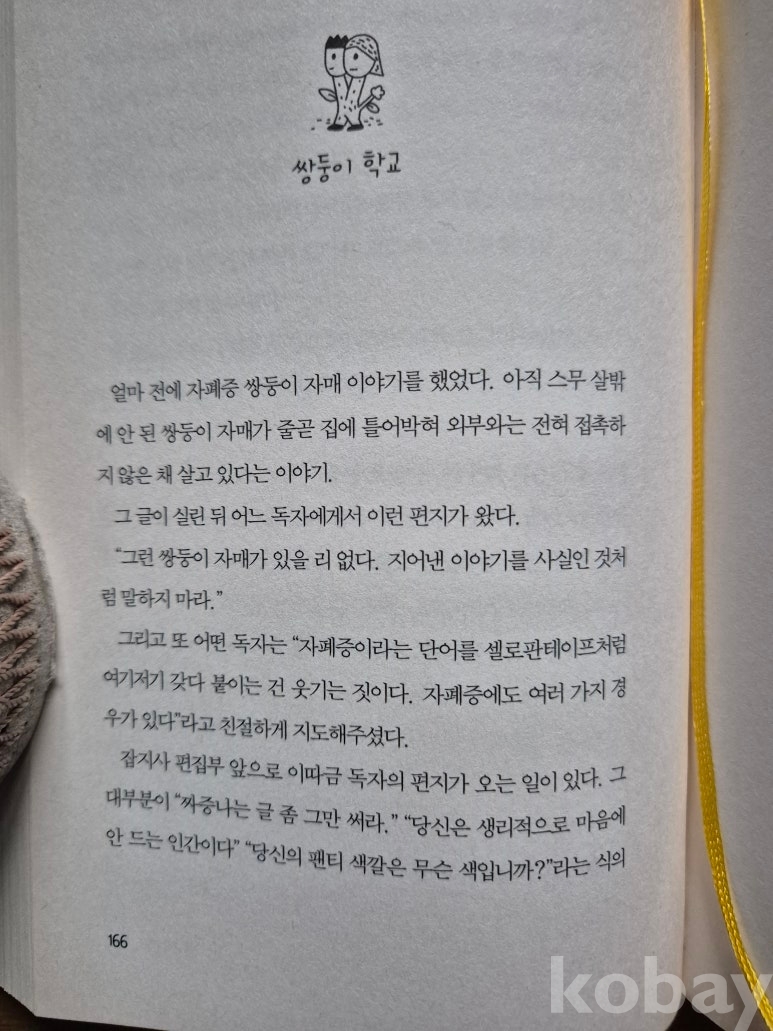 쌍둥이 학교
얼마 전에 자폐증 쌍둥이 자매 이야기를 했었다. 아직 스무 살밖
에 안 된 쌍둥이 자매가 줄곧 집에 틀어박혀 외부와는 전혀 접촉하
지 않은 채 살고 있다는 이야기.
그 글이 실린 뒤 어느 독자에게서 이런 편지가 왔다.
“그런 쌍둥이 자매가 있을 리 없다. 지어낸 이야기를 사실인 것처
럼 말하지 마라.”
그리고 또 어떤 독자는 “자폐증이라는 단어를 셀로판테이프처럼
여기저기 갖다 붙이는 건 웃기는 짓이다. 자폐증에도 여러 가지 경
우가 있다”라고 친절하게 지도해주셨다.
잡지사 편집부 앞으로 이따금 독자의 편지가 오는 일이 있다. 그
대부분이 “짜증나는 글 좀 그만 써라.” “당신은 생리적으로 마음에
안 드는 인간이다” “당신의 팬티 색깔은 무슨 색입니까?”라는 식의
166
kobay